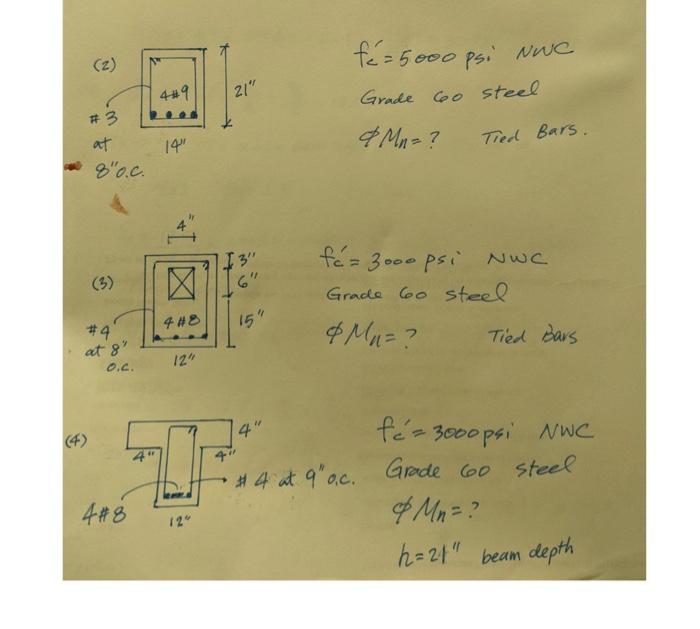 (2)
4#9
21"
14"
#3
at
8"o.c.
fc' = 5000 psi NWC
Grade 60 steel
φMn = ? Tied Bars.
(3)
4"
3"
6"
15"
4#8
12"
#4
at 8"
o.c.
fc' = 3000 psi NWC
Grade 60 steel
φMn = ? Tied Bars
(4)
4"
4" 4"
#4 at 9" o.c.
4#8
12"
fc' = 3000psi NWC
Grade 60 steel
φMn = ?
h = 21" beam depth